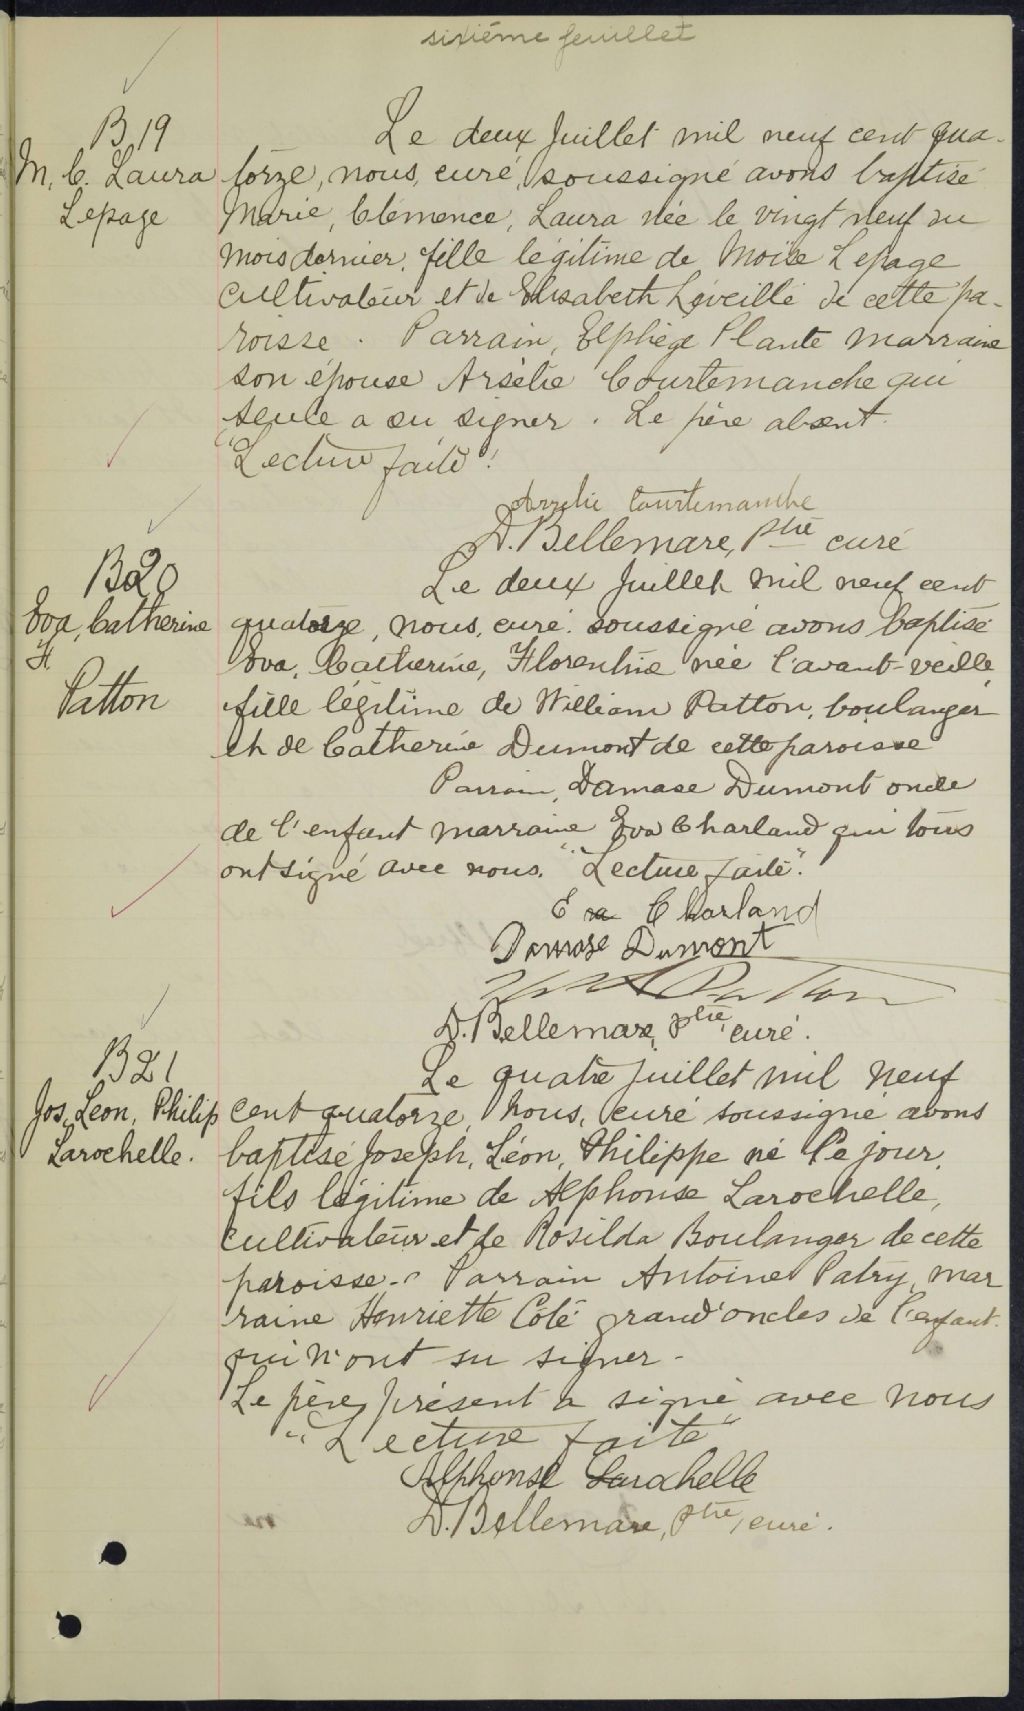 sixième feuillet
B 19
M. C. Laura
Lepage
Le deux Juillet mil neuf cent qua-
torze, nous, curé, soussigné avons baptisé
Marie, Clémence, Laura née le vingt neuf du
mois dernier, fille légitime de Moïse Lepage
cultivateur et de Elisabeth Léveillé de cette pa-
roisse. Parrain, Elphège Plante marraine
son épouse Arsélie Courtemanche qui
seule a su signer. Le père absent.
"Lecture faite"
Arzelie Courtemanche
D. Bellemare, Ptre curé
B20
Eva, Catherine
F.
Patton
Le deux Juillet mil neuf cent
quatorze, nous, curé soussigné avons baptisé
Eva, Catherine, Florentine née l'avant-veille,
fille légitime de William Patton, boulanger
et de Catherine Dumont de cette paroisse
Parrain, Damase Dumont oncle
de l'enfant marraine Eva Charland qui tous
ont signé avec nous. "Lecture faite".
Eva Charland
Damase Dumont
Patton
D. Bellemare, Ptre, curé.
B21
Jos. Léon, Philip
Larochelle.
Le quatre juillet mil neuf
cent quatorze, nous, curé soussigné avons
baptisé Joseph, Léon, Philippe né ce jour,
fils légitime de Alphonse Larochelle,
cultivateur et de Rosilda Boulanger de cette
paroisse. Parrain Antoine Patry, mar
raine Henriette Côté grand'oncles de l'enfant
qui n'ont su signer.
Le père présent a signé avec nous
"Lecture faite"
Alphonse Larochelle
D. Bellemare, Ptre, curé.